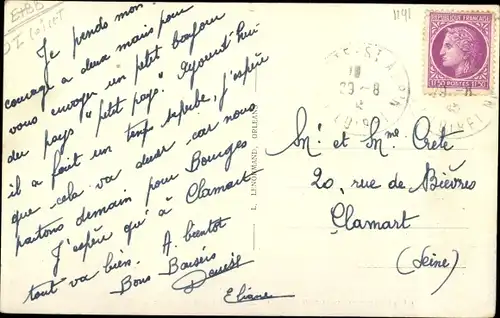 Je prends mon
courage a deux mains pour
vous envoyer un petit bonjour
du pays "petit pays".
il a fait un temps superbe, j'espère
que cela va durer car nous
partons demain pour Bourges
J'espère qu'à Clamart
tout va bien. A bientôt
Bons Baisers
Denise
Eliane
L. LENORMAND, ORLEANS
1191
REPUBLIQUE FRANÇAISE
1F50 POSTES 1F50
29-8
Mr et Mme Crété
20, rue de Bièvres
Clamart
(Seine)